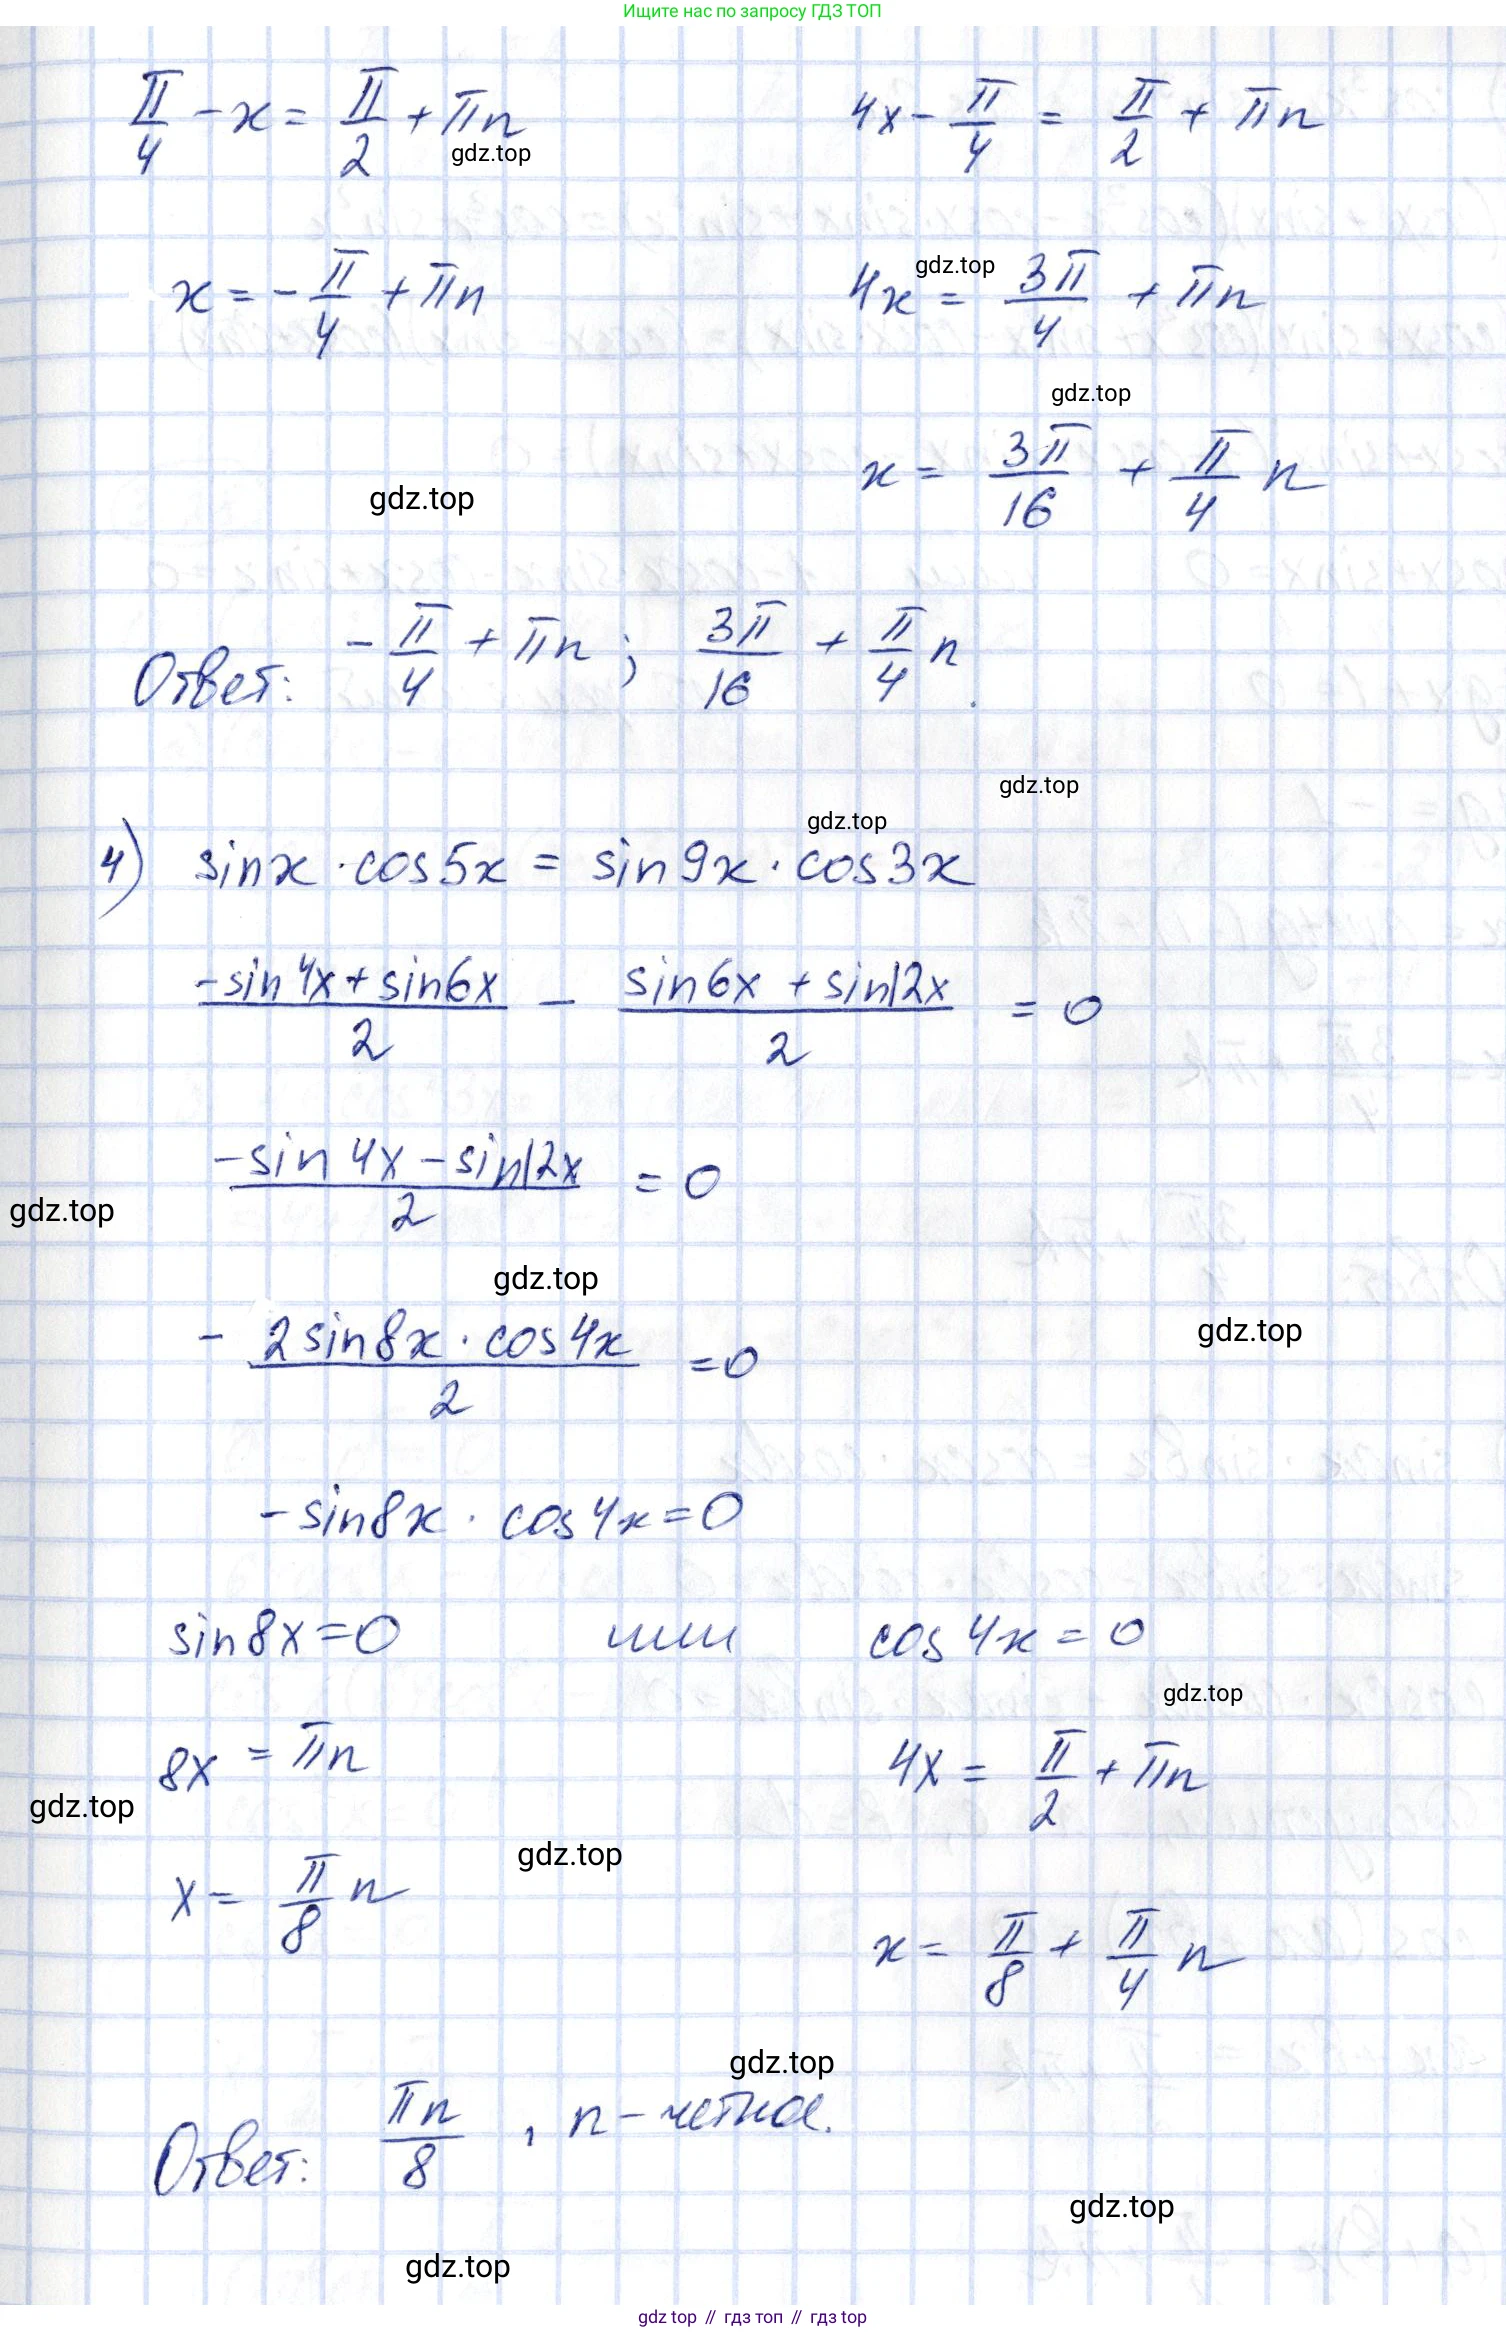 Ищите нас по запросу ГДЗ ТОП
π/4 - x = π/2 + πn    4x - π/4 = π/2 + πn
gdz.top
x = - π/4 + πn    4x = 3π/4 + πn
gdz.top
gdz.top
x = 3π/16 + π/4 n
gdz.top
Ответ: - π/4 + πn ; 3π/16 + π/4 n.
gdz.top
gdz.top
4) sinx · cos5x = sin9x · cos3x
(-sin4x + sin6x)/2 - (sin6x + sin12x)/2 = 0
(-sin4x - sin12x)/2 = 0
gdz.top
gdz.top
- (2sin8x · cos4x)/2 = 0
gdz.top
-sin8x · cos4x = 0
sin8x = 0    или    cos4x = 0
gdz.top
8x = πn    4x = π/2 + πn
gdz.top
gdz.top
x = π/8 n    x = π/8 + π/4 n
gdz.top
Ответ: πn/8 , n - четное.
gdz.top
gdz.top
gdz top // гдз топ // гдз top